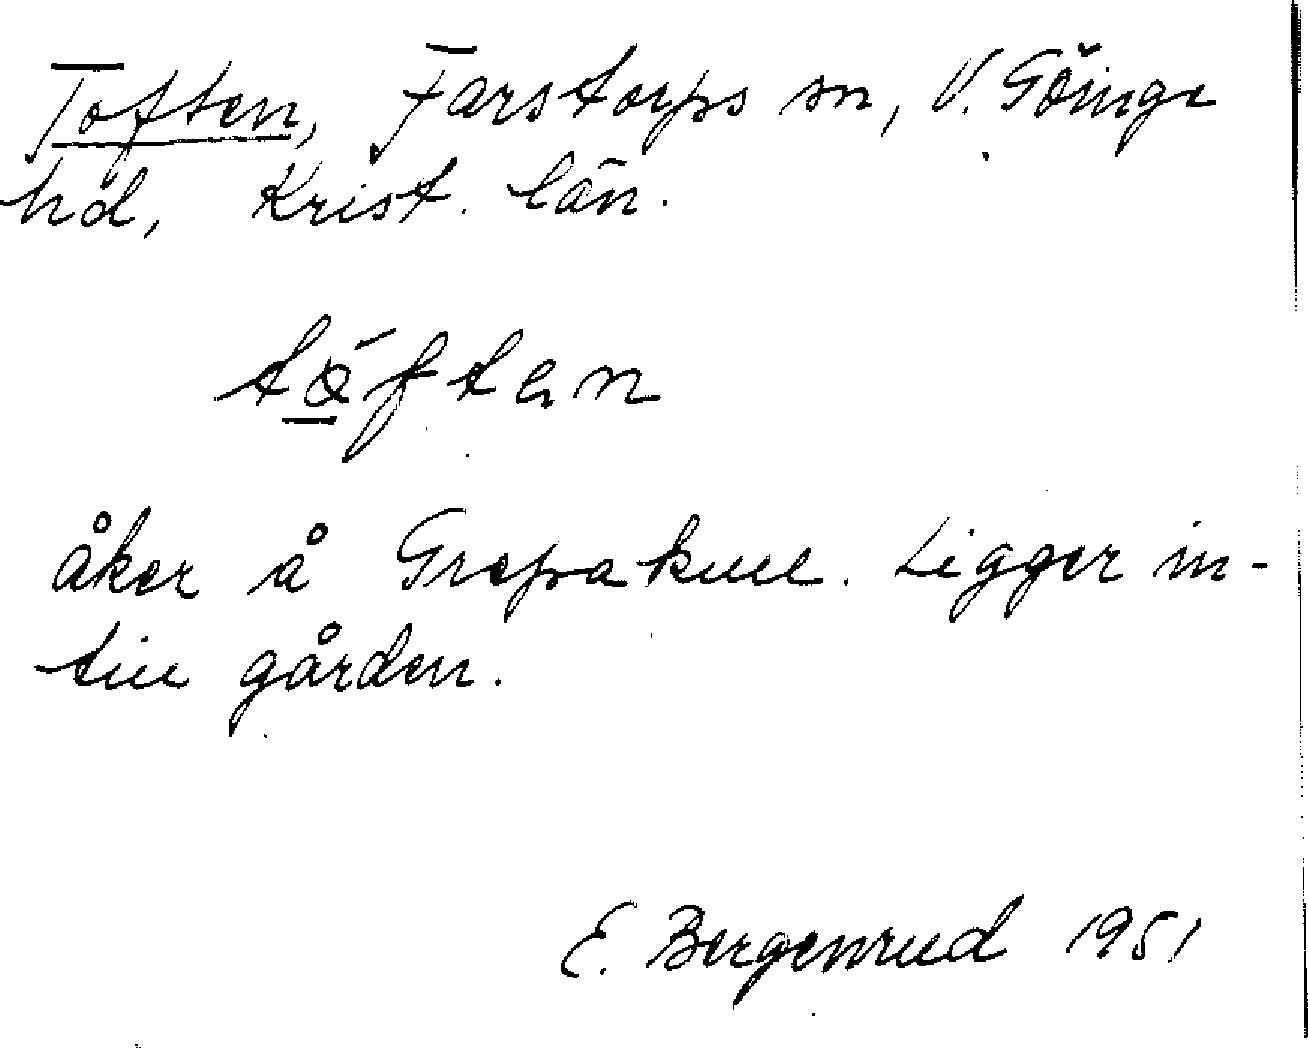 Toften, Farstorps sn, V. Göinge
hd, Krist. län.
åker å Grepakull. Ligger in-
till gården.
E. Bergenrud 1951